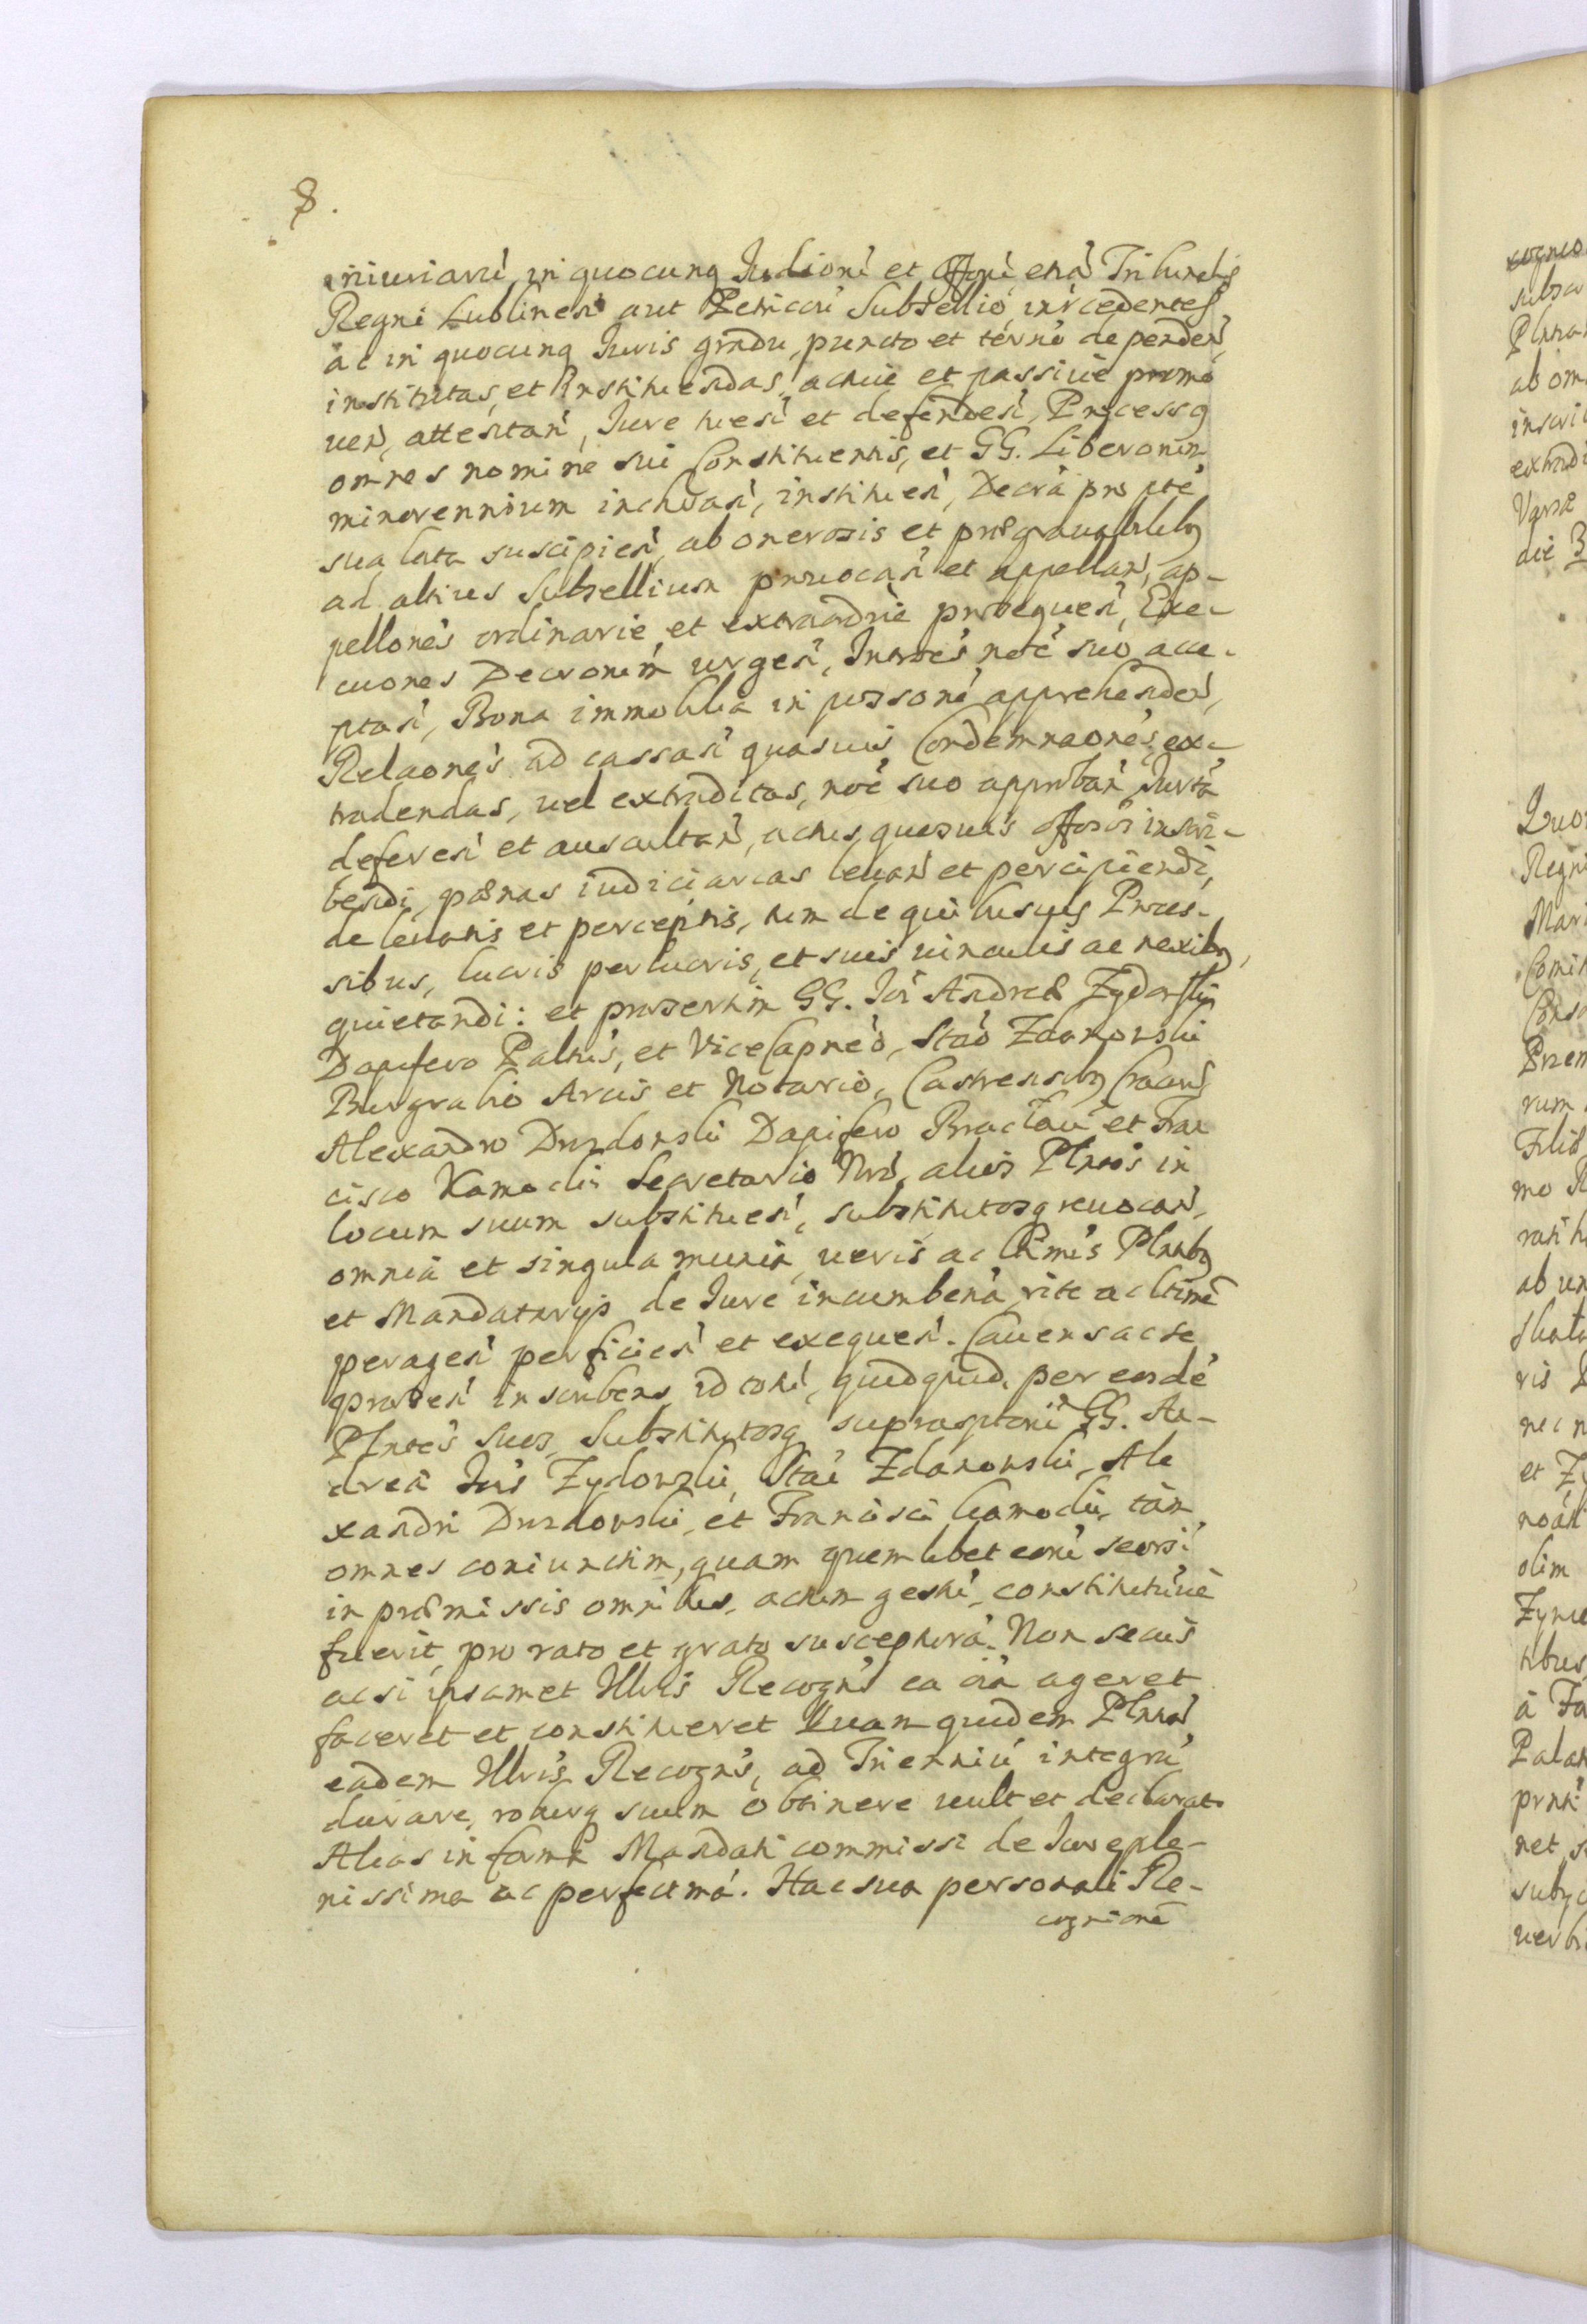 8.
iniuriarũ, in quocunq Iudicioni et Offõni, etiã Tribunalis
Regni Lublinẽsi aut Petricoũ Subsellio, intẽcedentes
ac in quocunq Iuris gradu, puncto et tẽrno dependeñ,
institutas, et instituendas, actiuè et passiuè promo
ueñ, attentañ, Iure tueñ et defendeñ, Processq
omnes nomine sui Constituentis, et GG. Liberorum
minorennium inchoañ, institueñ, Decrã pro pte
sua lata suscipieñ, ab onerosis et prægrauatibuq
ad altius Subsellium prouocañ et appellañ, ap-
pellones ordinarie et extraordrie prosequeñ, Exe-
cuones Decronem urgeñ, Introes noẽ suo acce-
ptañ, Bona immobilia in possonẽ apprehendeñ,
Relaones ad cassañ quasuis Condemnaones, ex-
tradendas, uel extraditas, noẽ suo approbañ Iurta
defereñ et auscultañ, actus quosuis Offosos inscri-
bendi, pœnas iudiciarias leuañ et percipiendi,
de leuatis et perceptis, tum de quibusuis Proces-
sibus, lucris perlucris, et suis uinculis ac nexibq,
quietandi: et præsertim GG. Ioi Andreæ Zydowski
Dapifero Paltus, et ViceCapneo, Stao Zdanowski
Burgrabio Arcis et Notario, Castrensibq Craciũ
Alexandro Duzdowski Dapifero Bractaũ et Fran
cisco Kamocki Secretario Nrõ, alios Plntes in
locum suum substitueñ, substitutosq reuocañ,
omnia et singula munia, ueris ac ltimis Plntibq
et Mandatarijs de Iure incumbentã rite ac ltimè
perageñ perficieñ et exequeñ. Cauens ac se
præseñ inscribens, id totũ, quidquid per eosdẽ
Plntes suos, Substitutosq suprascptoñe GG. An-
dreã Iois Zydowski, Stai Zdanowski, Ale
xandri Duzdowski, et Francisci Kamocki, tam
omnes coniunctim, quam quemlibet eorũ seorsi
in præmissis omnibus, actum gestũ, constitutũue
fuerit, pro rato et grato suscepturã. Non secus
ac si ipsamet Illris Recogns ea oĩa ageret
faceret et constitueret Quam quidem Plntiam
eadem Illris Recogns, ad Trienniũ integrũ
durare, roburq suum obtinere uult et declarat.
Alias in forma Mandati commissi de Iure ple-
nissima ac perfectma. Hac sua personali Re-
cognionẽ